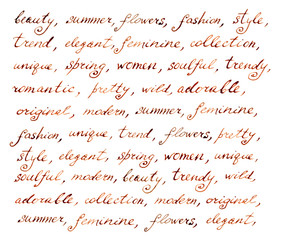 beauty, summer, flowers, fashion, style,
trend, elegant, feminine, collection,
unique, spring, women, soulful, trendy,
romantic, pretty, wild, adorable,
original, modern, summer, feminine,
fashion, unique, trend, flowers, pretty
style, elegant, spring, women, unique,
soulful, modern, beauty, trendy, wild,
adorable, collection, modern, original,
summer, feminine, flowers, elegant,